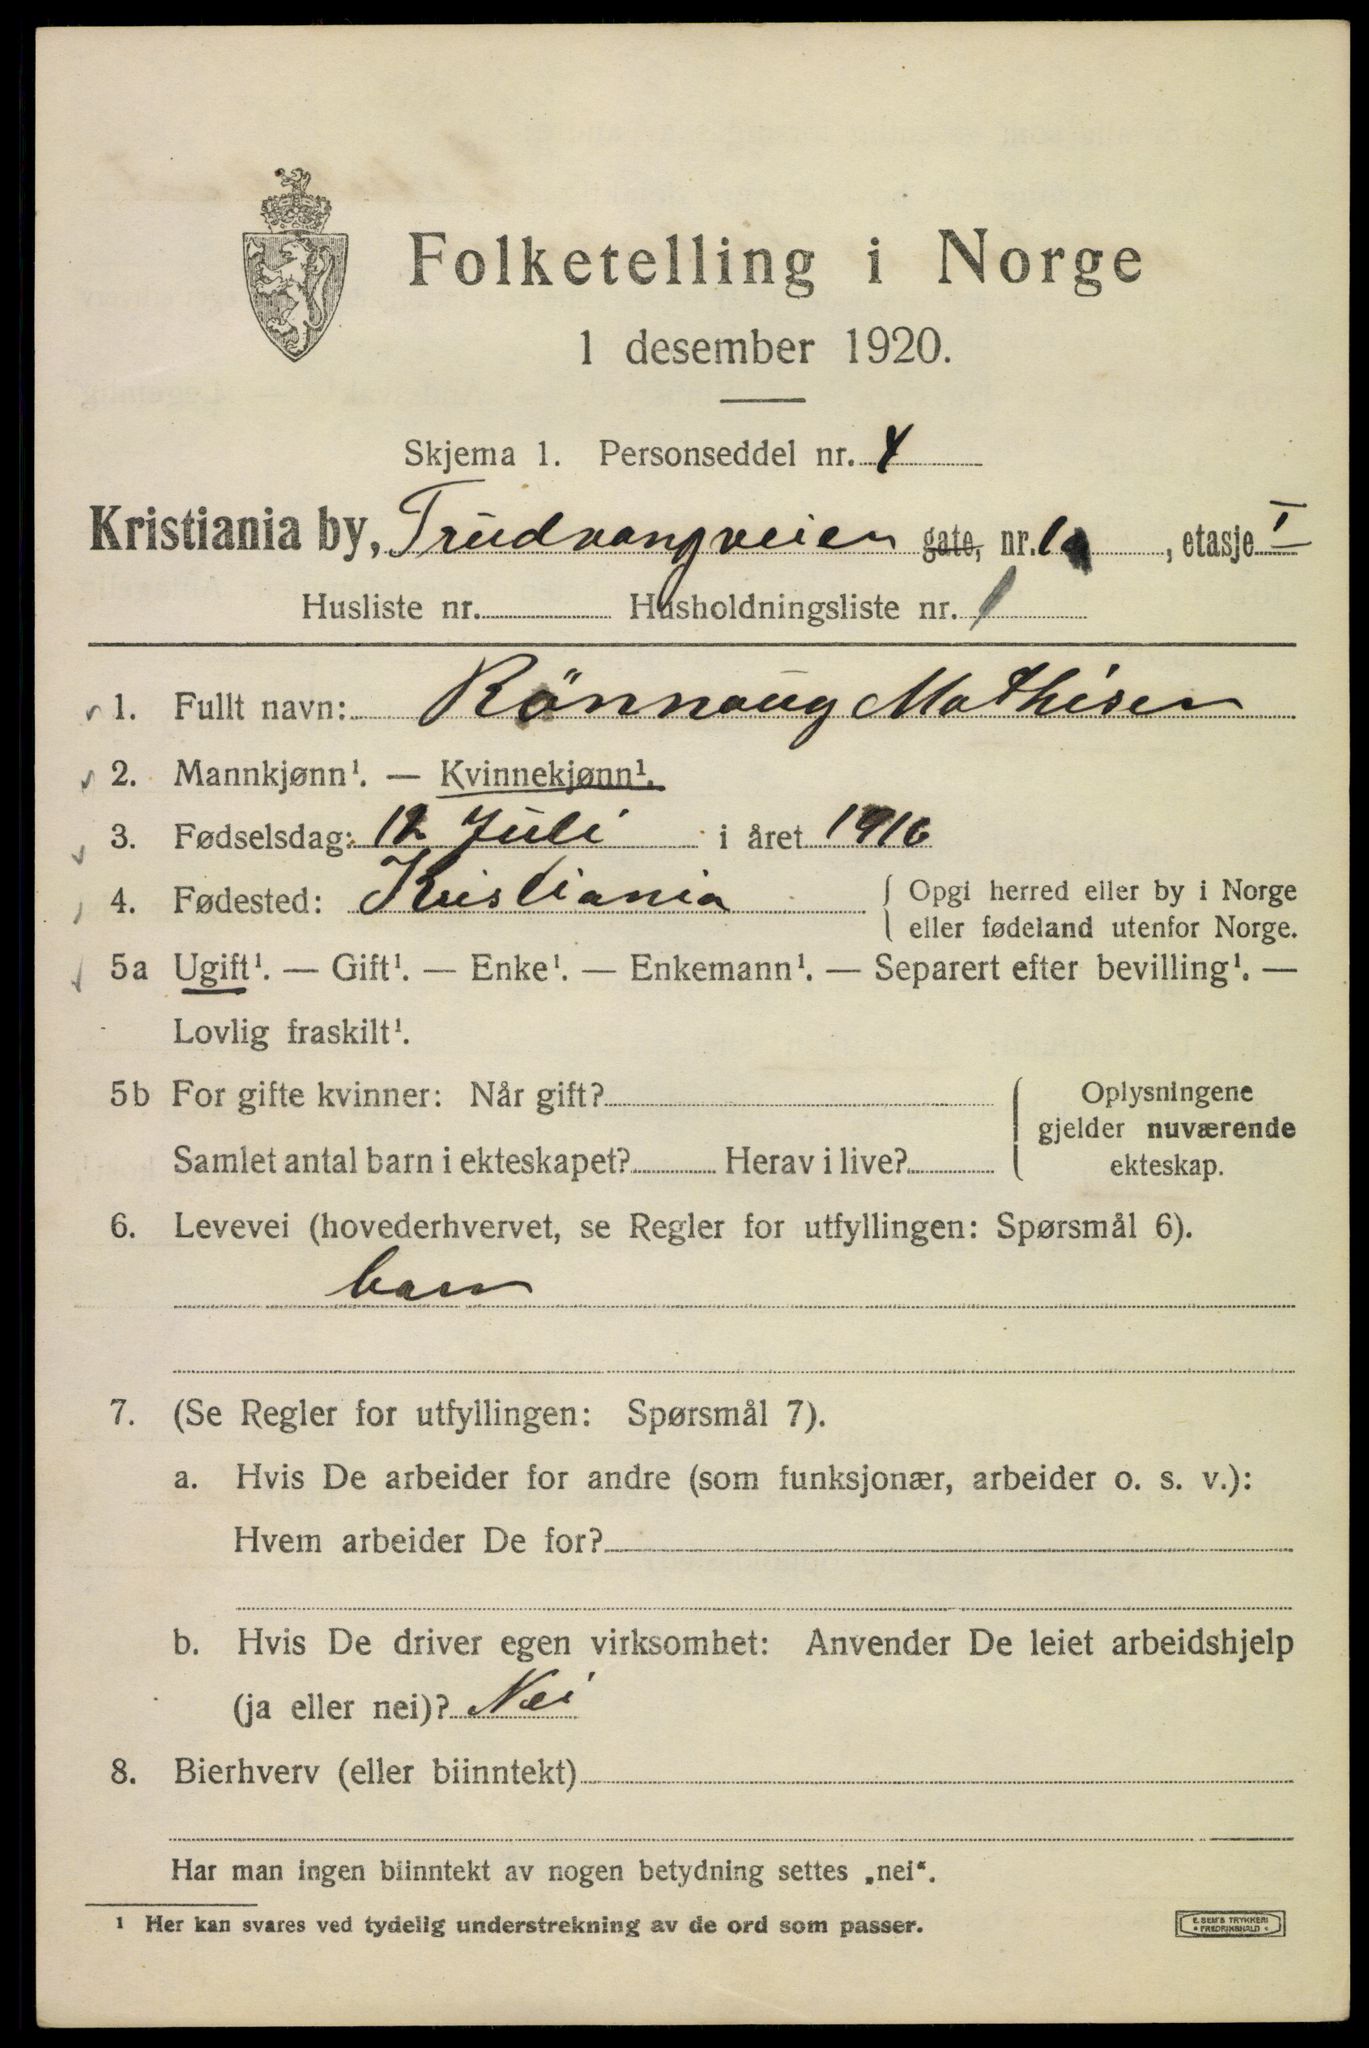 Folketelling i Norge
1 desember 1920.
Skjema 1. Personseddel nr. 4
Kristiania by, Trudvangveien gate, nr. 1a, etasje I
Husliste nr. Husholdningsliste nr. 1
1. Fullt navn: Rönnaug Mathisen
2. Mannkjønn¹. — Kvinnekjønn¹.
3. Fødselsdag: 12 Juli i året 1916
4. Fødested: Kristiania { Opgi herred eller by i Norge
eller fødeland utenfor Norge.
5a Ugift¹. — Gift¹. — Enke¹. — Enkemann¹. — Separert efter bevilling¹. —
Lovlig fraskilt¹.
5b For gifte kvinner: Når gift? Oplysningene
gjelder nuværende
Samlet antal barn i ekteskapet? Herav i live? ekteskap.
6. Levevei (hovederhvervet, se Regler for utfyllingen: Spørsmål 6).
barn
7. (Se Regler for utfyllingen: Spørsmål 7).
a. Hvis De arbeider for andre (som funksjonær, arbeider o. s. v.):
Hvem arbeider De for?
b. Hvis De driver egen virksomhet: Anvender De leiet arbeidshjelp
(ja eller nei)? Nei
8. Bierhverv (eller biinntekt)
Har man ingen biinntekt av nogen betydning settes „nei“.
¹ Her kan svares ved tydelig understrekning av de ord som passer.
E. SEM'S TRYKKERI
FREDRIKSHALD